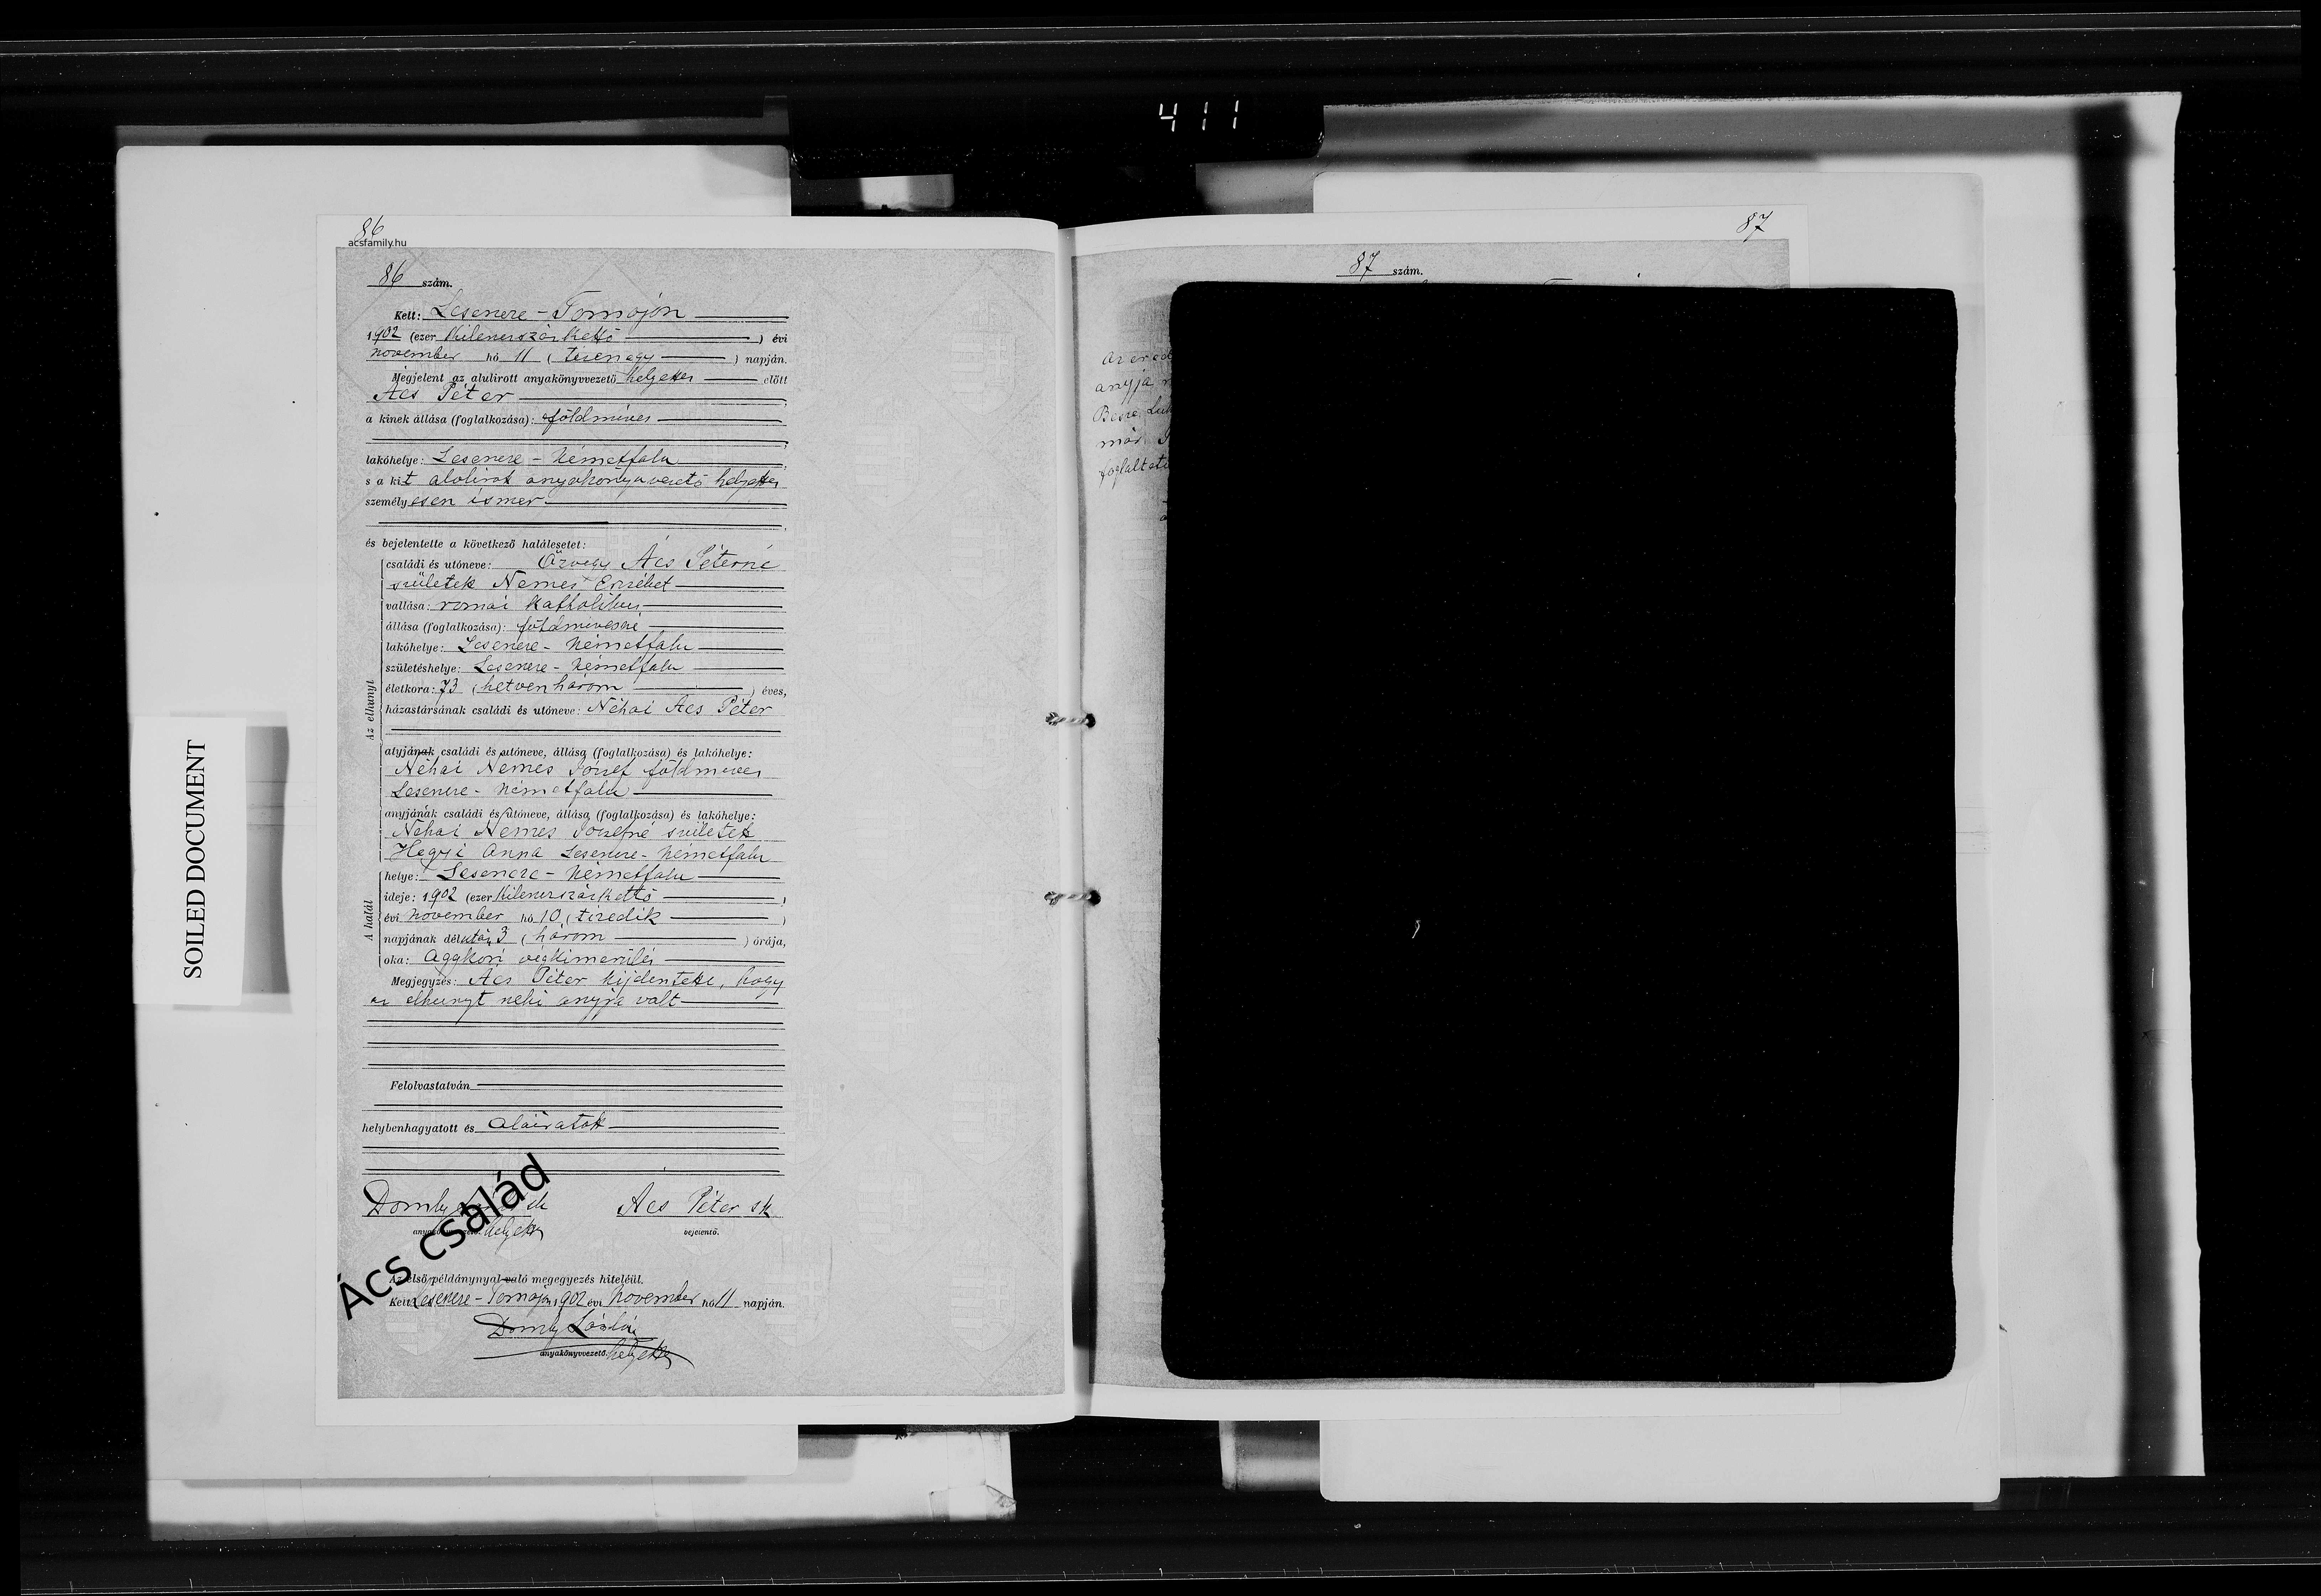 411
86
acsfamily.hu
86 szám.
Kelt: Lesencze-Tomajon
1902 (ezer kilenczszázkettő ) évi
november hó 11 (tizenegy ) napján.
Megjelent az alulirott anyakönyvvezető helyettes előtt
Ács Péter
a kinek állása (foglalkozása): földmíves
lakóhelye: Lesencze-Németfalu
s a kit alolirot anyakönyvvezető helyettes
személyesen ismer
és bejelentette a következő halálesetet:
Az elhunyt
családi és utóneve: Özvegy Ács Péterné
születek Nemes Erzsébet
vallása: romai katholikus
állása (foglalkozása): földmívesné
lakóhelye: Lesencze-Németfalu
születéshelye: Lesencze-Németfalu
életkora: 73 (hetvenhárom ) éves,
házastársának családi és utóneve: Néhai Ács Péter
atyjának családi és utóneve, állása (foglalkozása) és lakóhelye:
Néhai Nemes József földmíves
Lesencze-Németfalu
anyjának családi és utóneve, állása (foglalkozása) és lakóhelye:
Néhai Nemes Józsefné születek
Hegyi Anna Lesencze-Németfalu
A halál
helye: Lesencze-Németfalu
ideje: 1902 (ezer kilenczszázkettő
évi november hó 10 (tizedik )
napjának délután 3 (három ) órája,
oka: aggkori végkimerülés
Megjegyzés: Ács Péter kijelentette, hogy
az elhunyt neki anyja valt
Felolvastatván
helybenhagyatott és aláiratott
Ács Péter sk
helyettes
bejelentő.
Ács család
Az első példánynyal való megegyezés hiteléül.
Kelt Lesencze-Tomajon 1902 évi november hó 11 napján.
anyakönyvvezető. helyettes
SOILED DOCUMENT
87
87 szám.
anyja